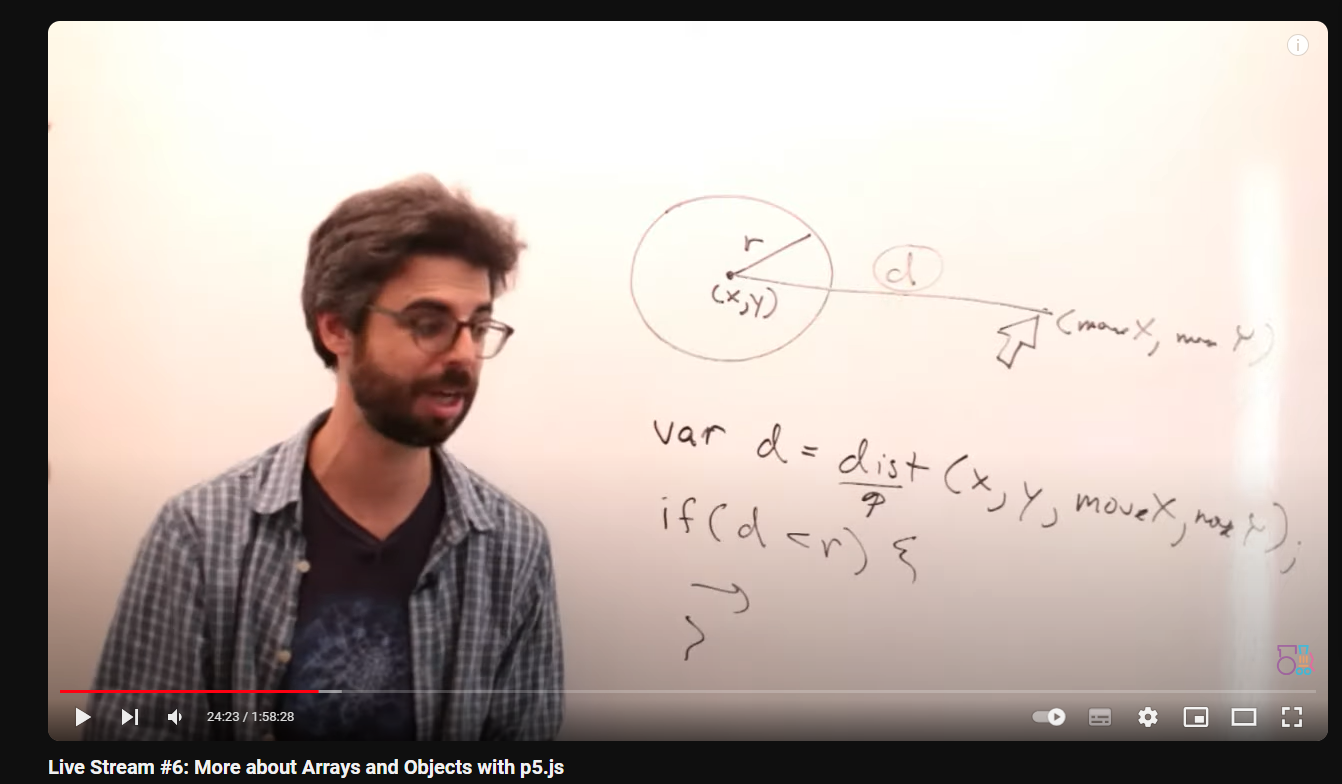 r
d
(x,y)
(mouseX, mouseY)
var d = dist (x, y, mouseX, mouseY);
if(d < r) {
}
24:23 / 1:58:28
Live Stream #6: More about Arrays and Objects with p5.js